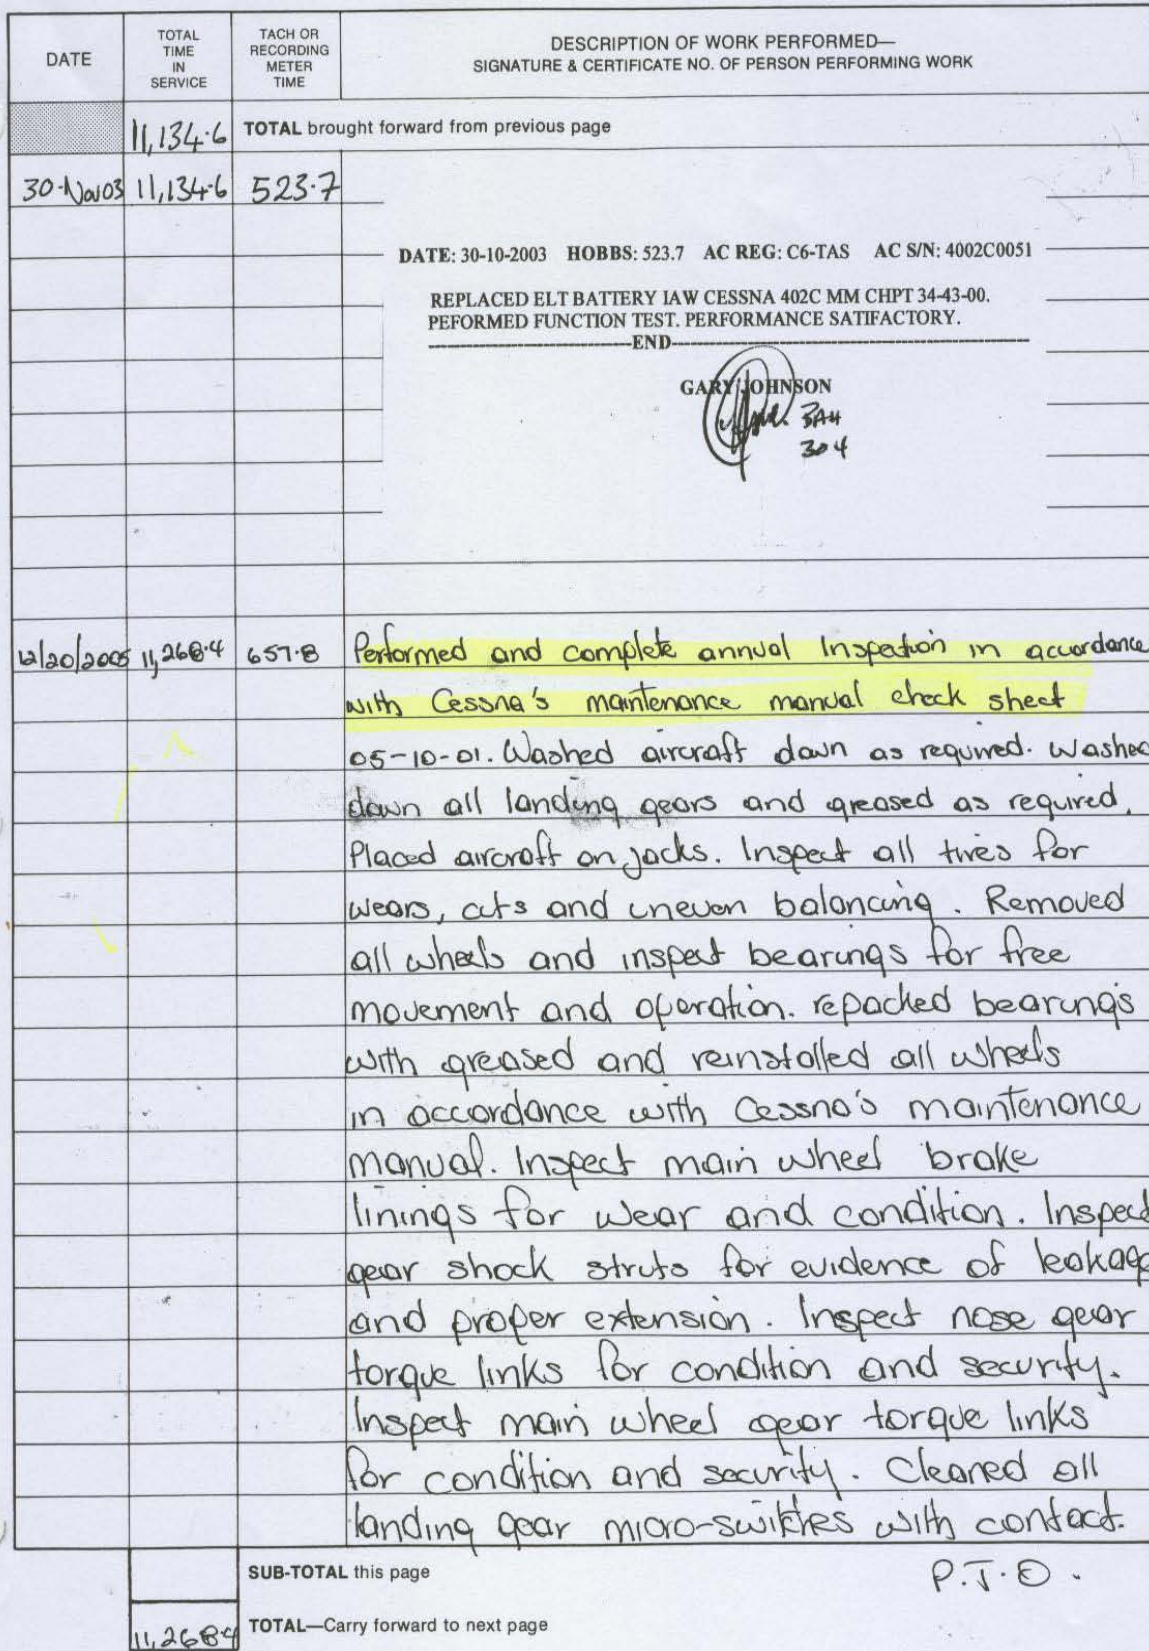 DATE
TOTAL
TIME
IN
SERVICE
TACH OR
RECORDING
METER
TIME
DESCRIPTION OF WORK PERFORMED—
SIGNATURE & CERTIFICATE NO. OF PERSON PERFORMING WORK
11,134.6 TOTAL brought forward from previous page
30-Nov03 11,134.6 523.7
DATE: 30-10-2003 HOBBS: 523.7 AC REG: C6-TAS AC S/N: 4002C0051
REPLACED ELT BATTERY IAW CESSNA 402C MM CHPT 34-43-00.
PEFORMED FUNCTION TEST. PERFORMANCE SATIFACTORY.
END
GARY JOHNSON
BAH
304
12/20/2005 11,268.4 657.8 Performed and complete annual Inspection in accordance
with Cessna's maintenance manual check sheet
05-10-01. Washed aircraft down as required. Washed
down all landing gears and greased as required.
Placed aircraft on jacks. Inspect all tires for
wears, cuts and uneven balancing. Removed
all wheels and inspect bearings for free
movement and operation. repacked bearings
with greased and reinstalled all wheels
in accordance with Cessna's maintenance
manual. Inspect main wheel brake
linings for wear and condition. Inspect
gear shock struts for evidence of leakage
and proper extension. Inspect nose gear
torque links for condition and security.
Inspect main wheel gear torque links
for condition and security. Cleaned all
landing gear micro-switches with contact.
SUB-TOTAL this page P.T.O.
11,268.4 TOTAL—Carry forward to next page